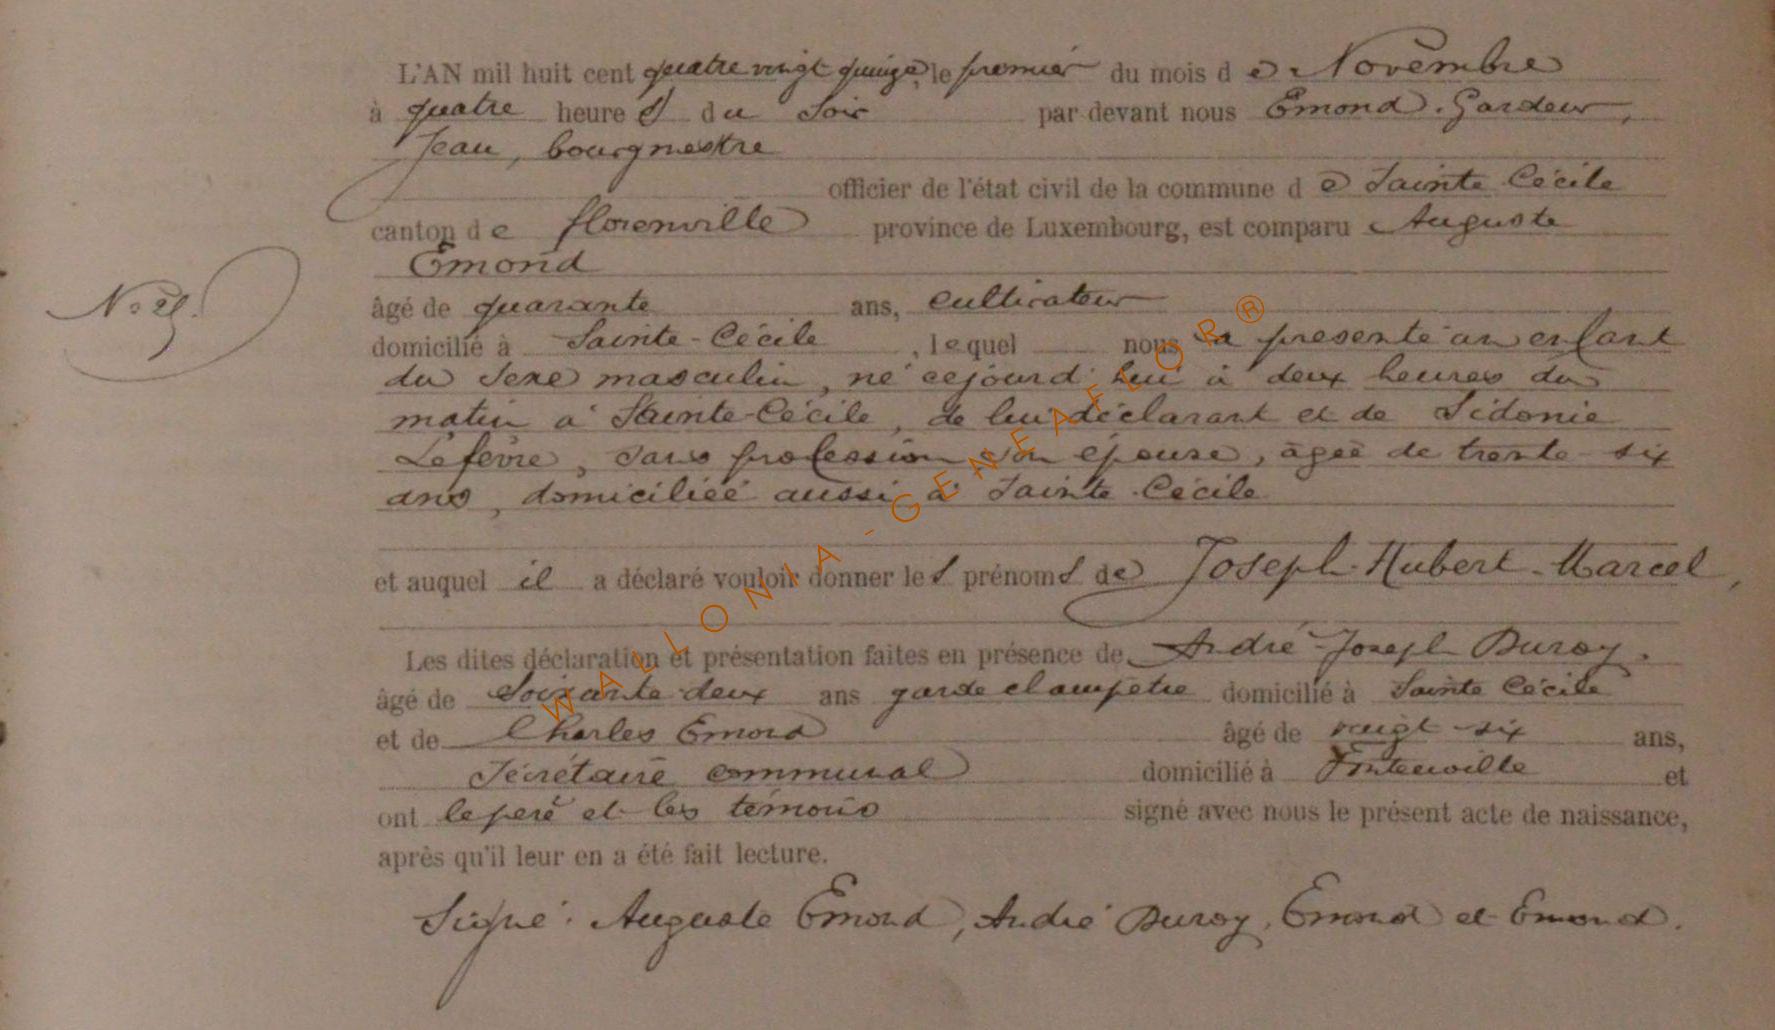 L'AN mil huit cent quatre vingt quinze, le premier du mois d e Novembre
à quatre heure s du soir par devant nous Emond-Gardeur,
Jean, bourgmestre
officier de l'état civil de la commune d e Sainte Cécile
canton d e florenville province de Luxembourg, est comparu Auguste
Emond
N° 25.
âgé de quarante ans, cultivateur
domicilié à Sainte-Cécile, lequel nous a présenté un enfant
du sexe masculin, né cejourd'hui à deux heures du
matin à Sainte-Cécile, de lui déclarant et de Sidonie
Lefèvre, sans profession son épouse, âgée de trente-six
ans, domiciliée aussi à Sainte-Cécile
et auquel il a déclaré vouloir donner les prénoms de Joseph-Hubert-Marcel,
Les dites déclaration et présentation faites en présence de André-Joseph Duroy,
âgé de soixante-deux ans garde champêtre domicilié à Sainte Cécile
et de Charles Emond âgé de vingt-six ans,
secrétaire communal domicilié à Fontenoille et
ont le père et les témoins signé avec nous le présent acte de naissance,
après qu'il leur en a été fait lecture.
Signé: Auguste Emond, André Duroy, Emond et Emond.
WALLONIA-GENEAFLOR®